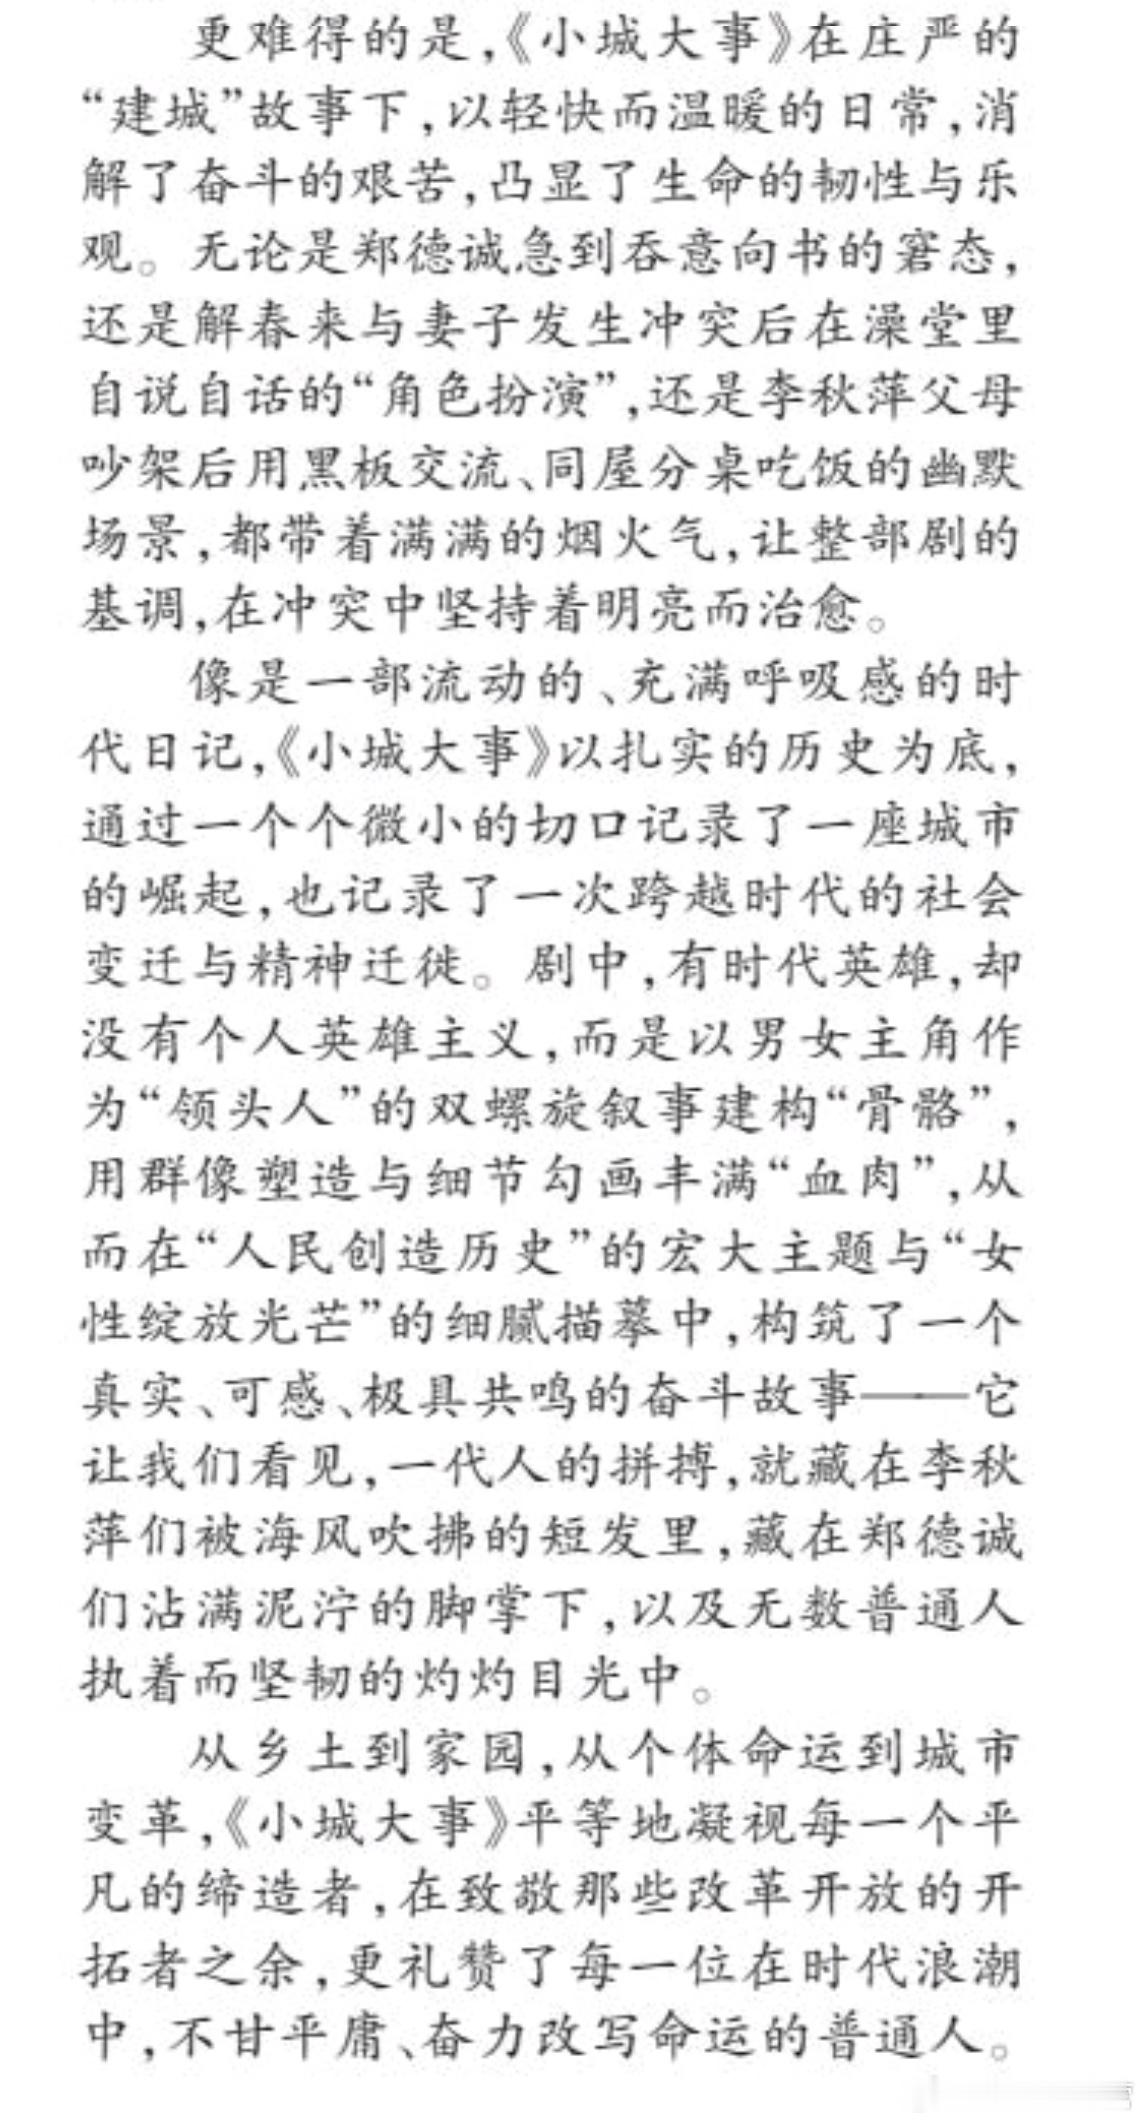 更难得的是，《小城大事》在庄严的
“建城”故事下，以轻快而温暖的日常，消
解了奋斗的艰苦，凸显了生命的韧性与乐
观。无论是郑德诚急到吞意向书的窘态，
还是解春来与妻子发生冲突后在澡堂里
自说自话的“角色扮演”，还是李秋萍父母
吵架后用黑板交流、同屋分桌吃饭的幽默
场景，都带着满满的烟火气，让整部剧的
基调，在冲突中坚持着明亮而治愈。
像是一部流动的、充满呼吸感的时
代日记，《小城大事》以扎实的历史为底，
通过一个个微小的切口记录了一座城市
的崛起，也记录了一次跨越时代的社会
变迁与精神迁徙。剧中，有时代英雄，却
没有个人英雄主义，而是以男女主角作
为“领头人”的双螺旋叙事建构“骨骼”，
用群像塑造与细节勾画丰满“血肉”，从
而在“人民创造历史”的宏大主题与“女
性绽放光芒”的细腻描摹中，构筑了一个
真实、可感、极具共鸣的奋斗故事——它
让我们看见，一代人的拼搏，就藏在李秋
萍们被海风吹拂的短发里，藏在郑德诚
们沾满泥泞的脚掌下，以及无数普通人
执着而坚韧的灼灼目光中。
从乡土到家园，从个体命运到城市
变革，《小城大事》平等地凝视每一个平
凡的缔造者，在致敬那些改革开放的开
拓者之余，更礼赞了每一位在时代浪潮
中，不甘平庸、奋力改写命运的普通人。